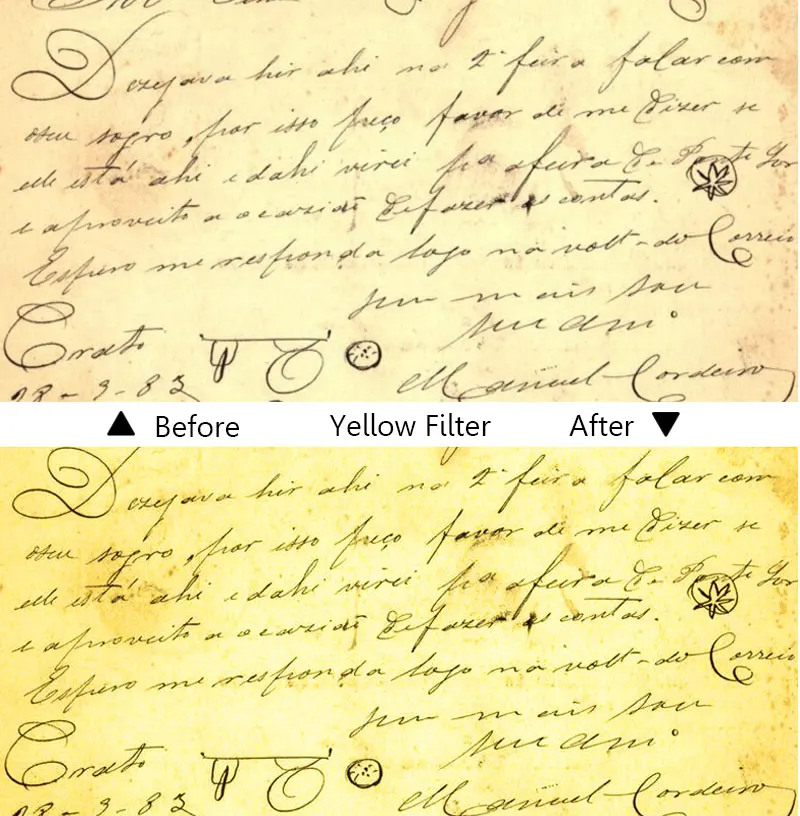 Dezejava hir ahi na 2ª feira falar com
oseu sogro, por isso peço favor de me dizer se
elle está ahi e dahi virei pa afeira de
e aproveito a ocazião defazer as contas.
Espero me responda logo na volt-do Correio
sou
Crato
Manuel Cordeiro
▲ Before Yellow Filter After ▼
Dezejava hir ahi na 2ª feira falar com
oseu sogro, por isso peço favor de me dizer se
elle está ahi e dahi virei pa afeira de
e aproveito a ocazião defazer as contas.
Espero me responda logo na volt-do Correio
sou
Crato
Manuel Cordeiro